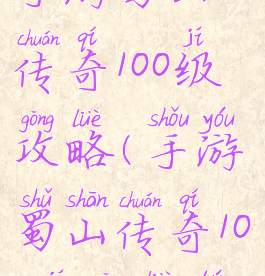 chuán qí jí
传奇100级
gōng lüè shǒu yóu
攻略(手游
shǔ shān chuán qí
蜀山传奇10